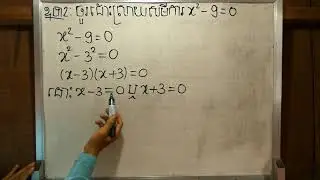 ឧទា2: ចូរដោះស្រាយសមីការ x² - 9 = 0
x² - 9 = 0
x² - 3² = 0
(x - 3)(x + 3) = 0
ដោះ x - 3 = 0 ឬ x + 3 = 0